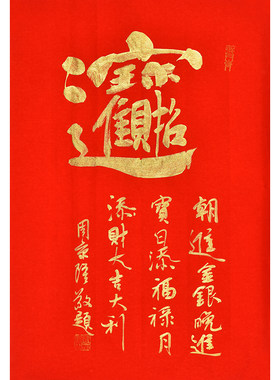 招財進寶
朝進金銀晚進
寶日添福祿月
添財大吉大利
周 敬題